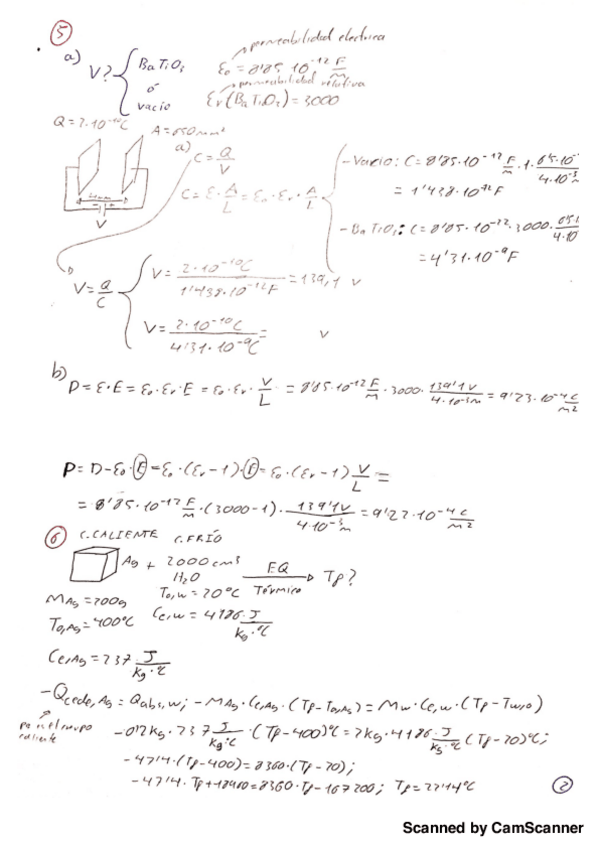 ⑤
a) V? { BaTiO₃ ó vacío
permeabilidad electrica
ε₀ = 8'85·10⁻¹² F/m
permeabilidad relativa
εr(BaTiO₃) = 3000
Q = 2·10⁻¹⁰C A = 650mm²
4mm
V
a) C = Q/V
C = ε·A/L = ε₀·εr·A/L
- Vacío: C = 8'85·10⁻¹² F/m · 1 · 65·10⁻/4·10⁻³
= 1'438·10⁻¹²F
- BaTiO₃: C = 8'85·10⁻¹²·3000·651/4·10
= 4'31·10⁻⁹F
V = Q/C
V = 2·10⁻¹⁰C/1'438·10⁻¹²F = 139,1 V
V = 2·10⁻¹⁰C/4'31·10⁻⁹C = V
b) D = ε·E = ε₀·εr·E = ε₀·εr·V/L = 8'85·10⁻¹² F/m · 3000 · 139'1V/4·10⁻³m = 9'23·10⁻⁴ C/m²
P = D-ε₀·E = ε₀·(εr-1)·E = ε₀·(εr-1) V/L =
= 8'85·10⁻¹² F/m · (3000-1) · 139'1V/4·10⁻³m = 9'22·10⁻⁴ C/m²
⑥ C.CALIENTE C.FRÍO
Ag + 2000cm³ H₂O EQ Térmico → Tf?
MAg = 200g T₀,w = 20°C
T₀,Ag = 400°C Ce,w = 4186 J/kg·°C
Ce,Ag = 237 J/kg·°C
-Qcede,Ag = Qabs,w; -MAg·Ce,Ag·(Tf-T₀,Ag) = Mw·Ce,w·(Tf-Tw,0)
por el cuerpo caliente
-0'2kg·237 J/kg·°C·(Tf-400)°C = 2kg·4186 J/kg·°C (Tf-20)°C;
-47'4·(Tf-400) = 8360·(Tf-20);
-47'4·Tf+18960 = 8360·Tf-167200; Tf = 22'14°C
②
Scanned by CamScanner